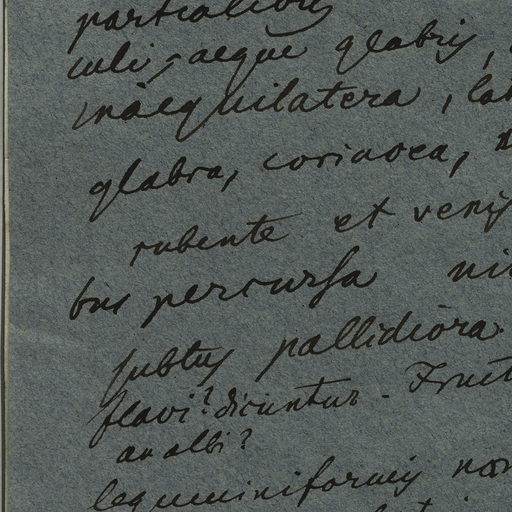 partialibus
culi, aeque glabris,
inaequilatera, lan
glabra, coriacea,
rubente et venis
bus percursa ni
subtus pallidiora.
flavi? dicuntur. Fruct
an albi?
leguminiformis non